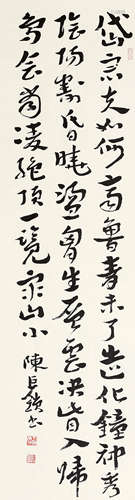 岱宗夫如何齊魯青未了造化鐘神秀
陰陽割昏曉盪胸生層雲決眥入歸
鳥會當凌絕頂一覽眾山小 陳巨鎖書